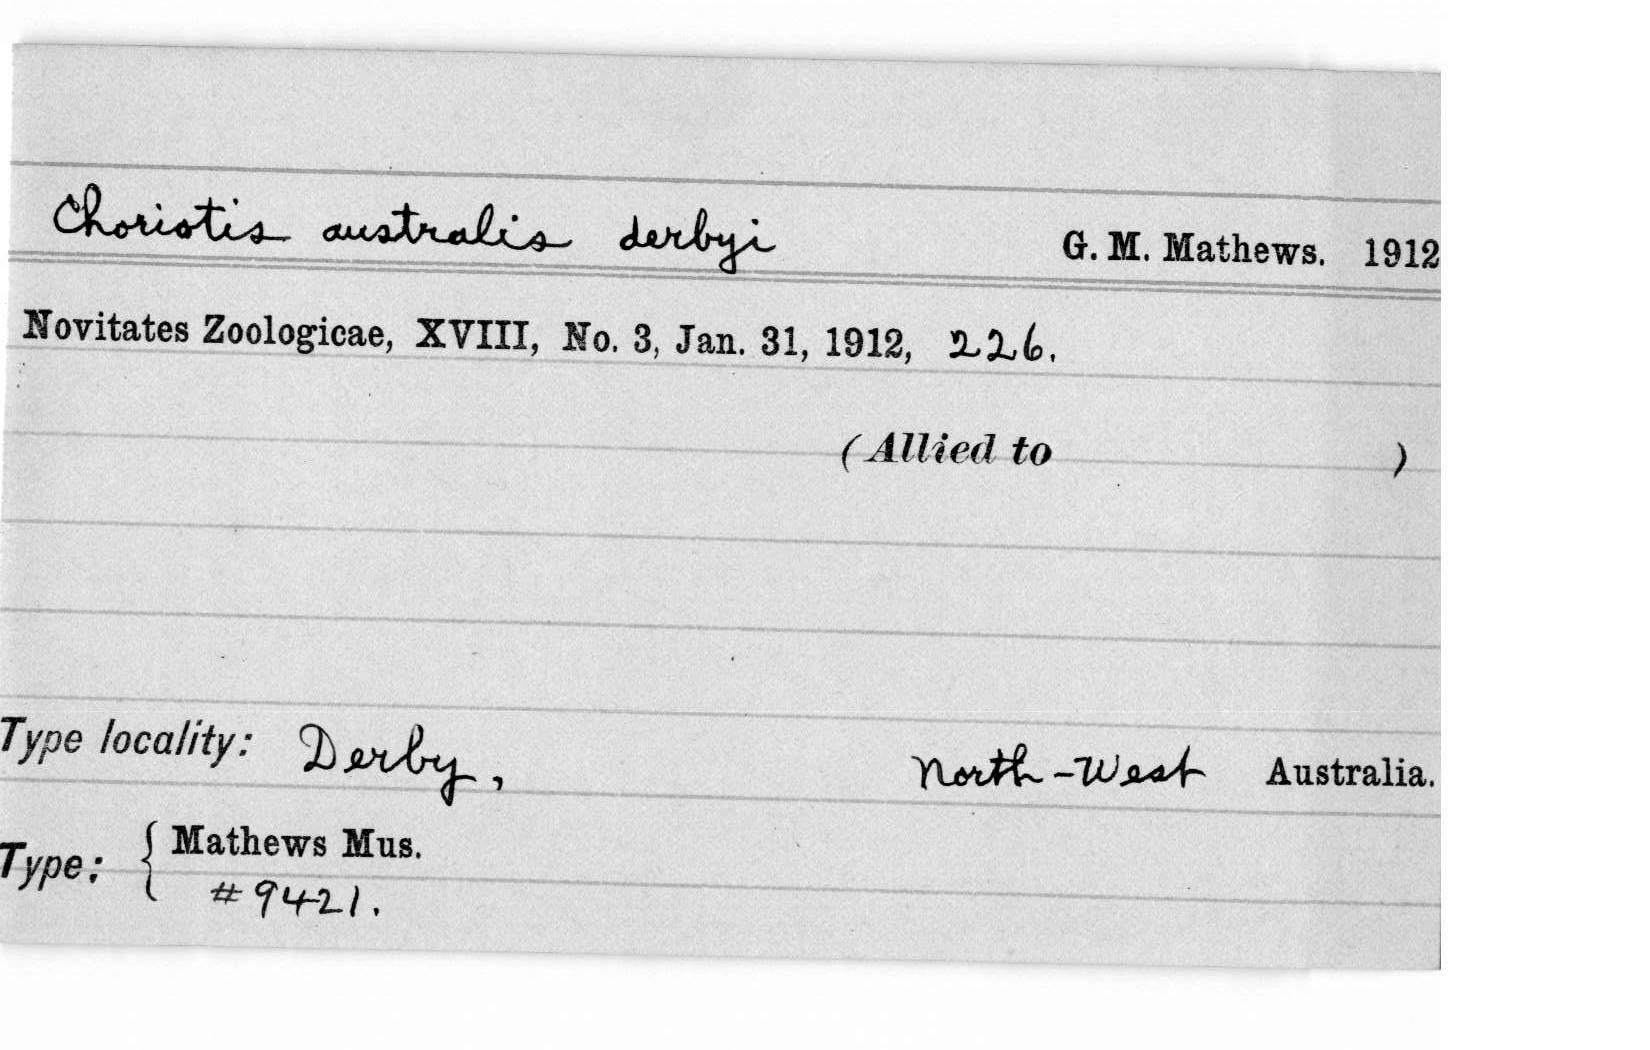 Choriotis australis derbyi G. M. Mathews. 1912
Novitates Zoologicae, XVIII, No. 3, Jan. 31, 1912, 226.
(Allied to )
Type locality: Derby, North-West Australia.
Type: { Mathews Mus.
#9421.